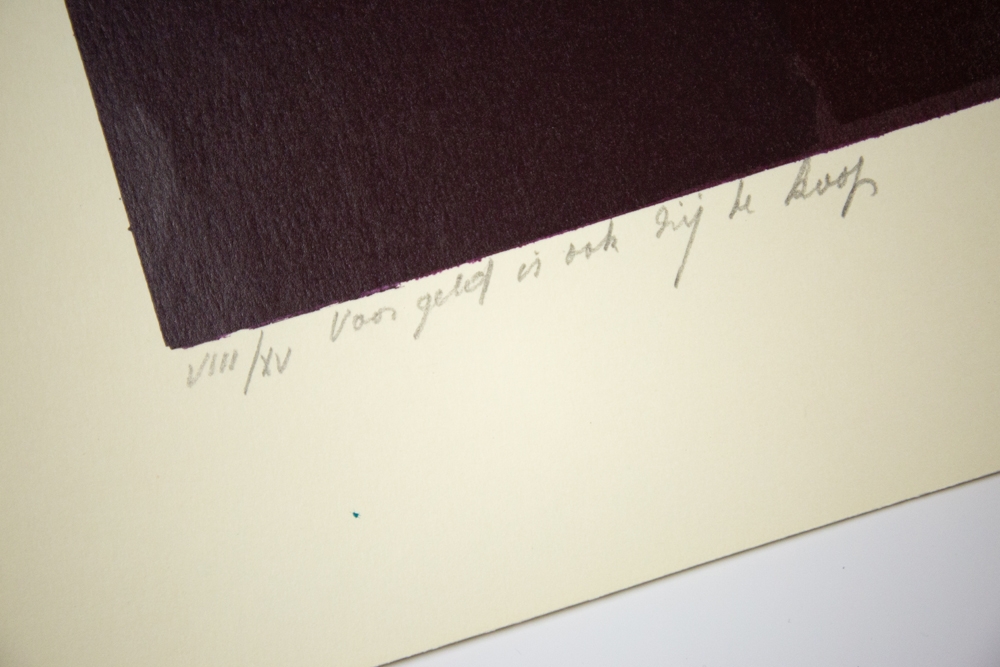 VIII/XV Voor geld is ook zij te koop